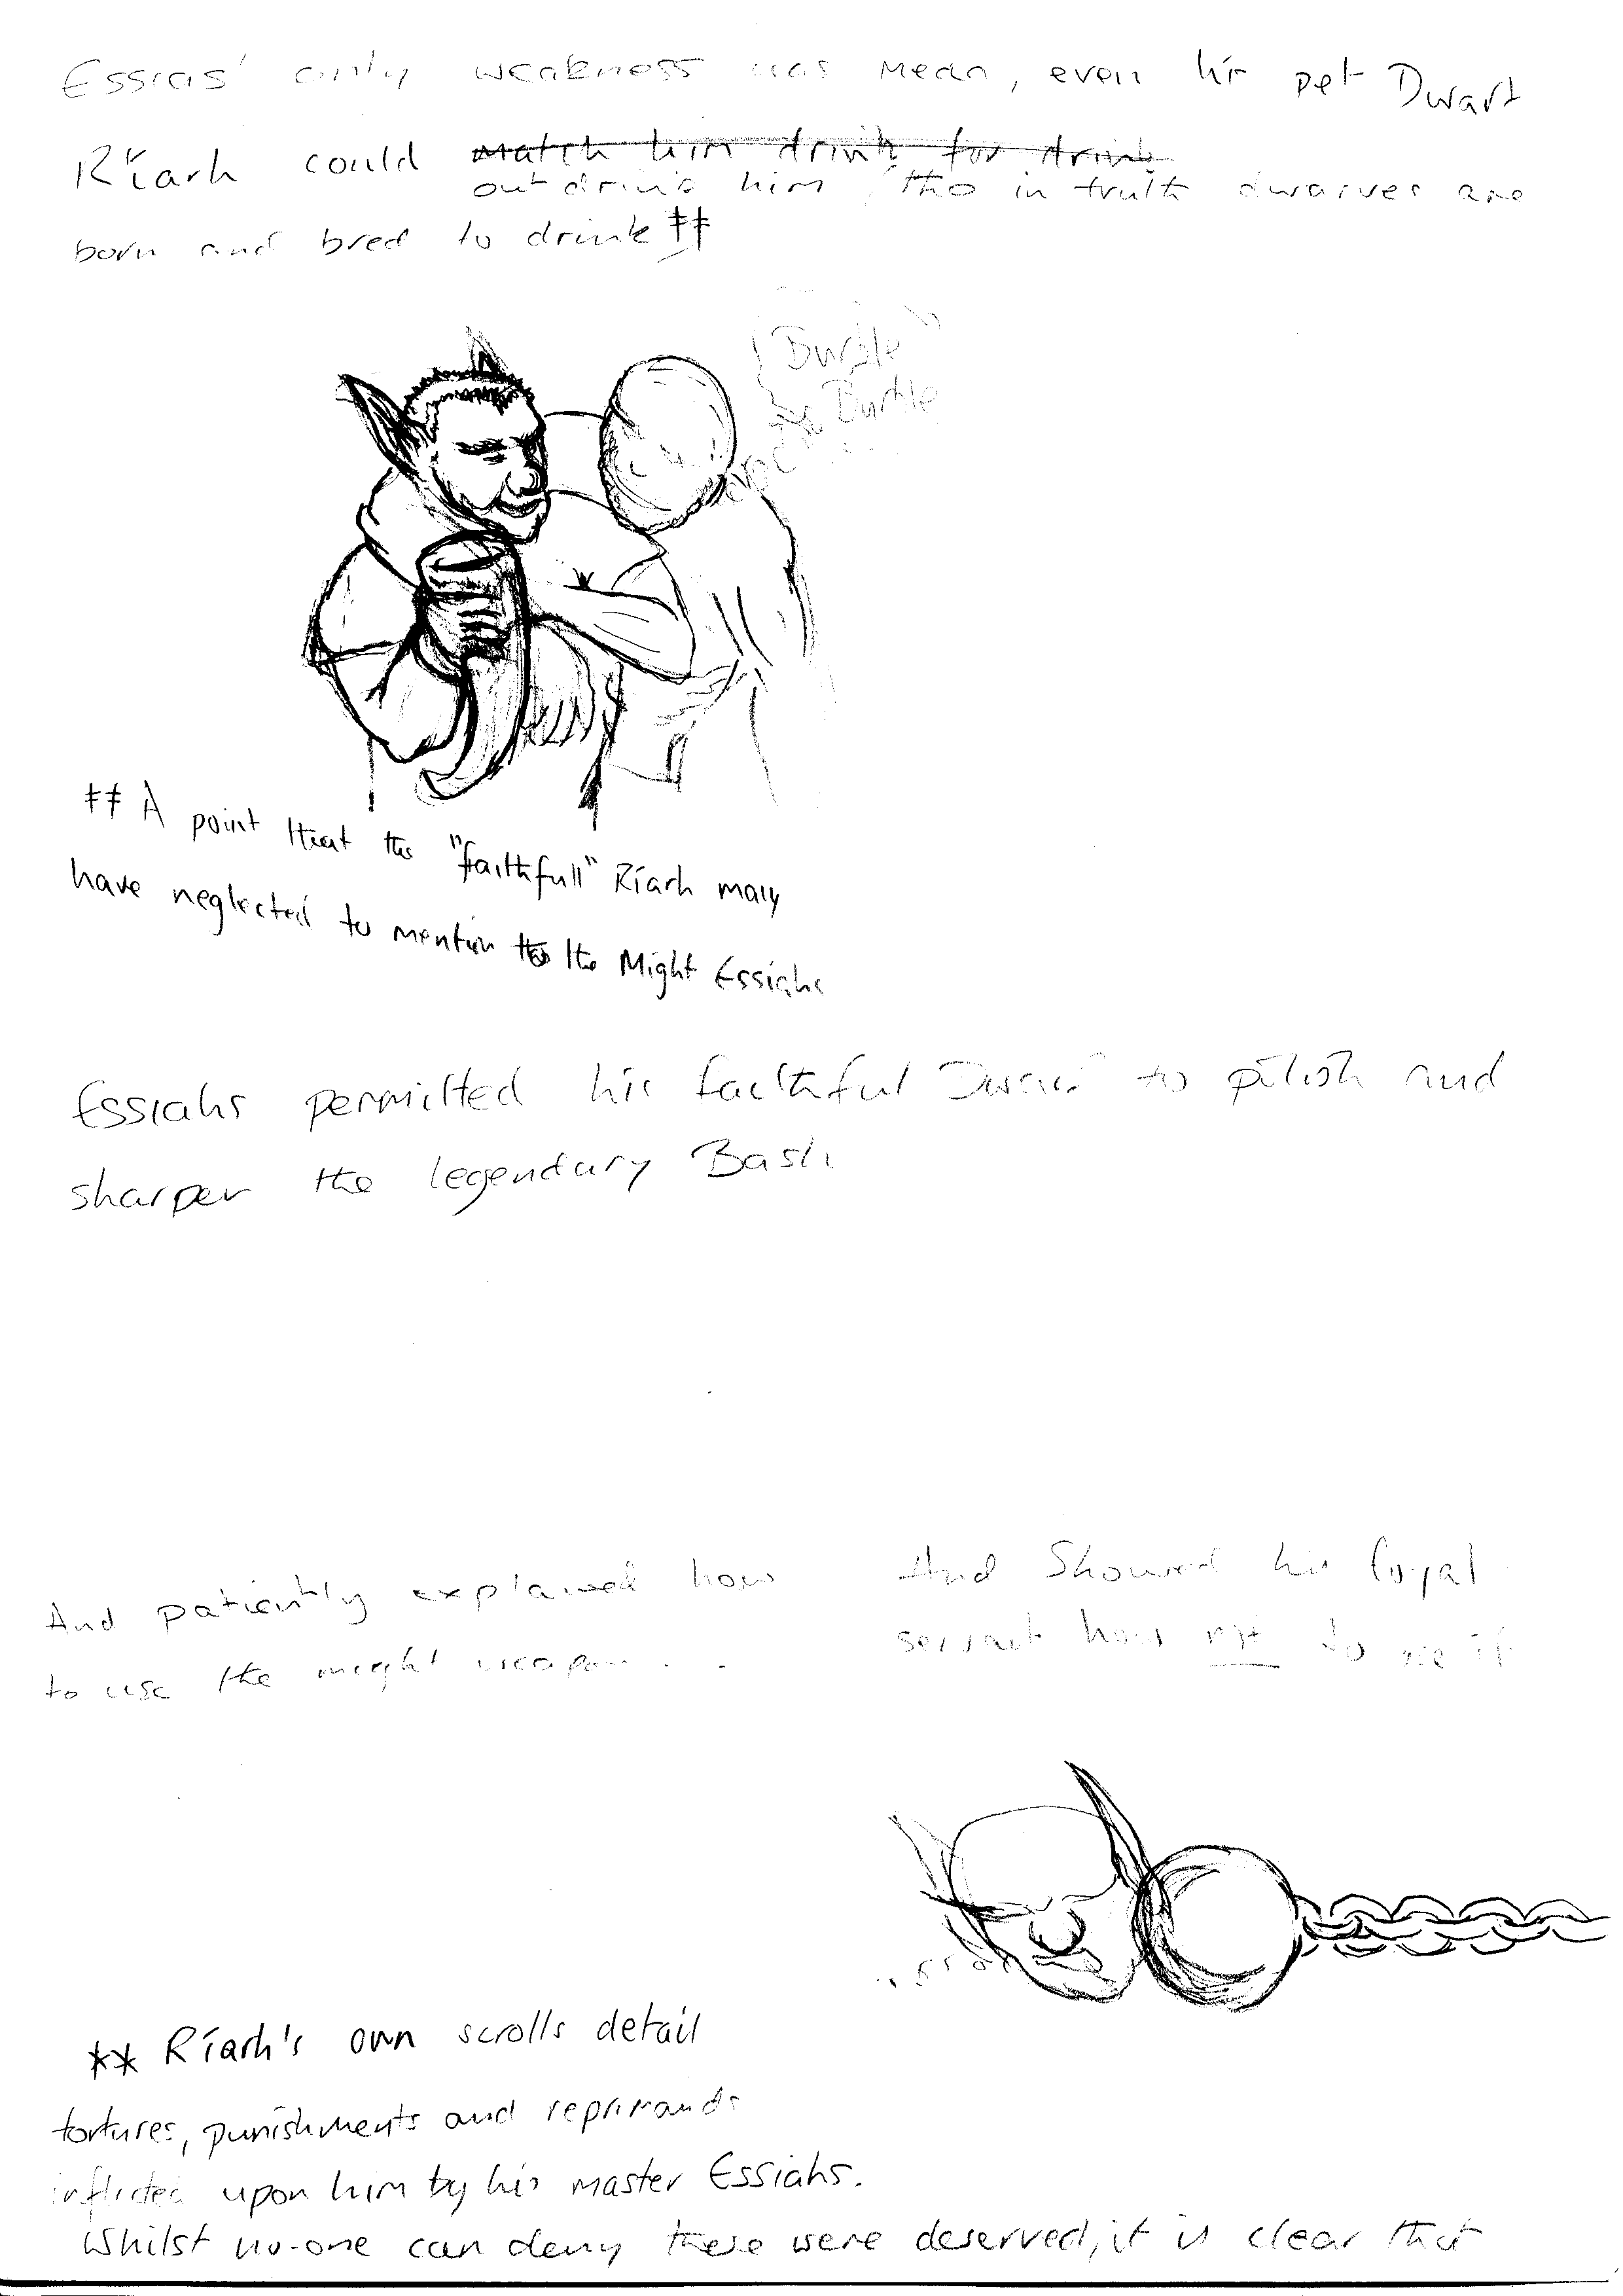 Essias' only weakness was Mean, even his pet Dwarf
Ríarh could ~~match him drink for drink~~
outdrink him, tho in truth dwarves are
born and bred to drink ‡‡
Burble
Burble
‡‡ A point that the "faithfull" Ríarh may
have neglected to mention to the Might Essiahs
Essiahs permitted his faithful Dwarf to polish and
sharpen the legendary Bash
And patiently explained how
to use the might weapon . . .
And Showed his loyal
servant how not to use it
** Ríarh's own scrolls detail
tortures, punishments and reprimands
inflicted upon him by his master Essiahs.
Whilst no-one can deny these were deserved, it is clear that